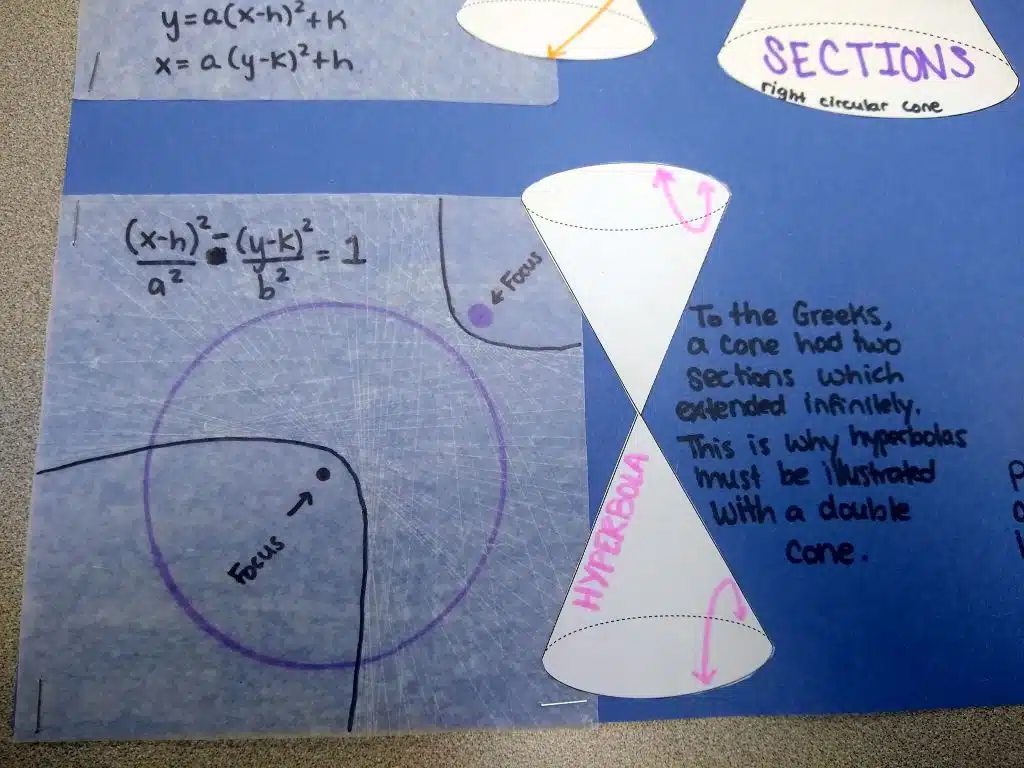 y=a(x-h)²+k
x=a(y-k)²+h
SECTIONS
right circular cone
(x-h)²/a² - (y-k)²/b² = 1
Focus
Focus
HYPERBOLA
To the Greeks,
a cone had two
sections which
extended infinitely.
This is why hyperbolas
must be illustrated
with a double
cone.